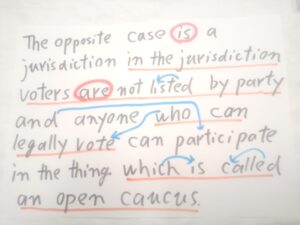 The opposite case is a
jurisdiction in the jurisdiction
voters are not listed by party
and anyone who can
legally vote can participate
in the thing which is called
an open caucus.